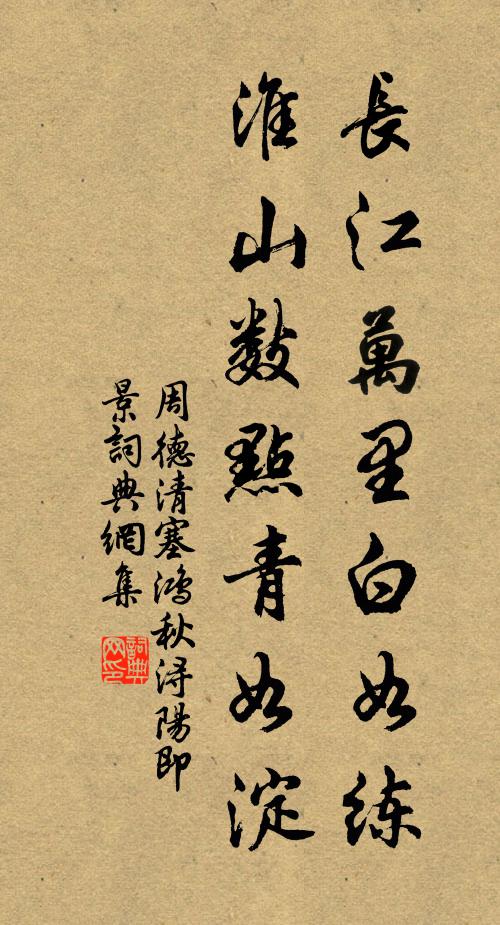 長江萬里白如练
淮山數點青如淀
周德清塞鸿秋浔陽即
景詞典網集
詞典
网印